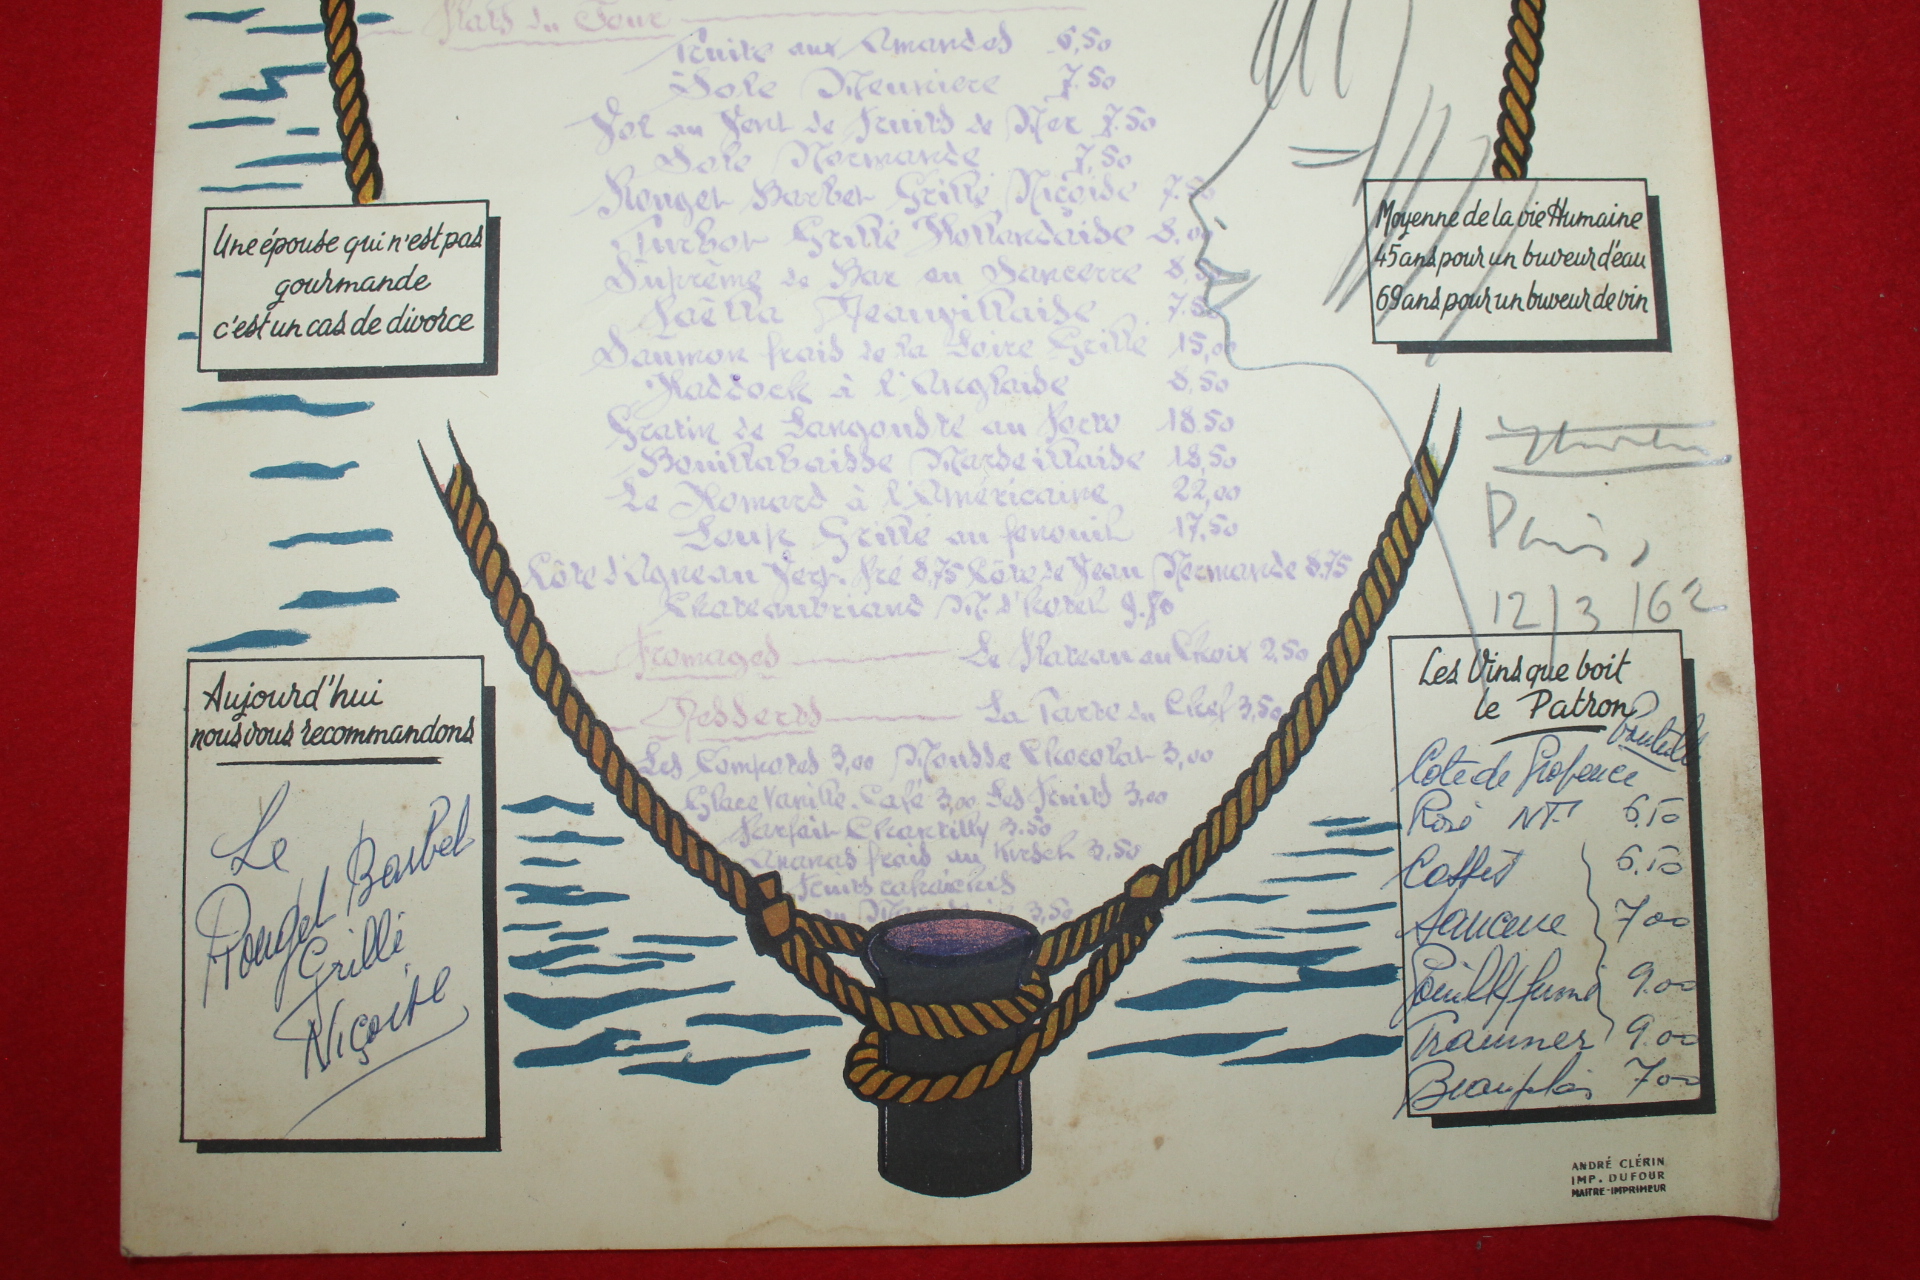 Plats du Jour
Truite aux Amandes 6,50
Sole Meuniere 7.50
Vol au Vent de Fruits de Mer 7.50
Sole Normande 7,50
Rouget Barbet Grillé Niçoise 7.50
Turbot Grillé Hollandaise 8.00
Suprême de Bar au Sancerre 8,50
Paëlla 7.50
Saumon frais de la Loire Grillé 15,00
Haddock à l'Anglaise 8,50
Gratin de Langouste au Porto 18.50
Bouillabaisse Marseillaise 18,50
Le Homard à l'Américaine 22,00
Loup Grillé au fenouil 17,50
Côte d'Agneau Vert-Pré 8,75 Côte de Veau Normande 8.75
Chateaubriand M. d'hotel 9.50
Fromages Le Plateau au Choix 2,50
Desserts La Tarte du Chef 3,50
Les Compotes 3,00 Mousse Chocolat 3,00
Glace Vanille-Café 3,00 Les Fruits 3,00
Parfait Chantilly 3.50
Ananas frais au Kirsch 3,50
Fruits rafraichis
au 3,50
Une épouse qui n'est pas
gourmande
c'est un cas de divorce
Moyenne de la vie Humaine
45 ans pour un buveur d'eau
69 ans pour un buveur de vin
Paris,
12/3/62
Aujourd'hui
nous vous recommandons
Le
Rouget Barbet
Grillé
Niçoise
Les Vins que boit
le Patron
bouteille
Cote de Provence
Rosé NF. 6.50
Cassis 6.50
Sancerre 7 00
Pouilly fumé 9.00
Traminer 9.00
Beaujolais 7 00
ANDRÉ CLÉRIN
IMP. DUFOUR
MAITRE-IMPRIMEUR